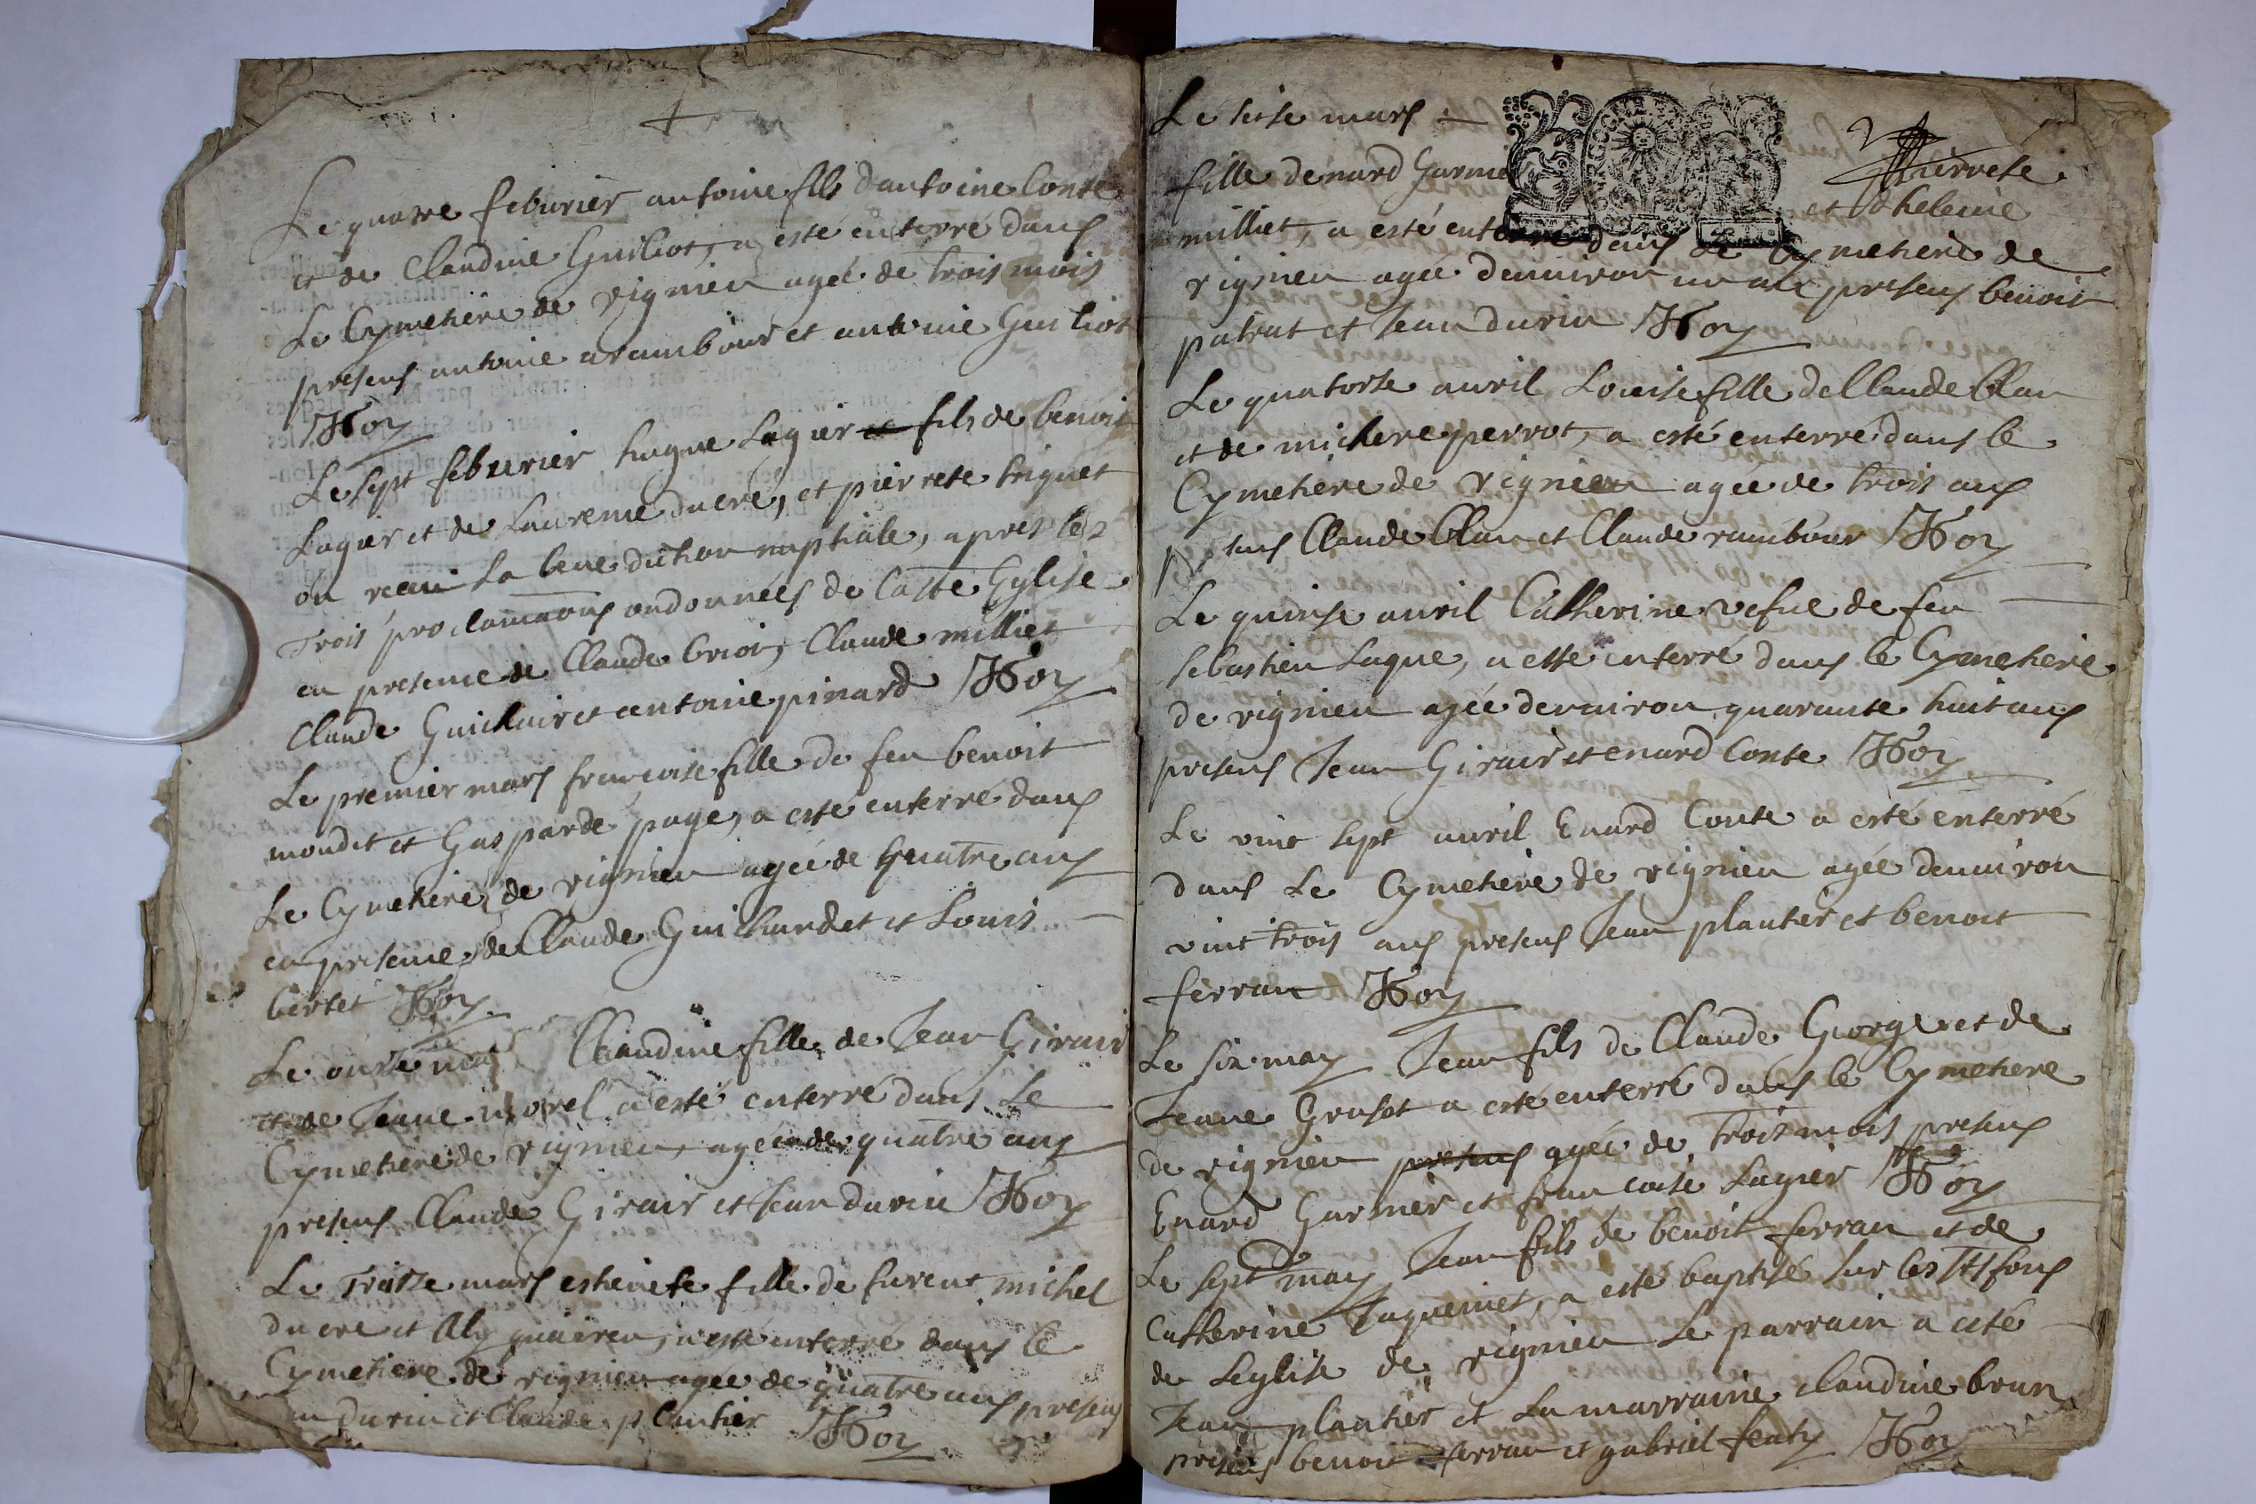 Le quatre feburier antoine fils dantoine Conte
et de Claudine Guilliot, a esté enterré dans
Le Cymetiere de vignieu agée de trois mois
presens antoine arambour et antoine Guilliot
Roy
Le sept feburier hugue Lagier et fils de benoit
Lagier et de Laurence ducré, et pierrete triquet
on receu La benediction nuptiale, apres les
Trois proclamaons ordonnées de Catte Eglise
en presence de Claude briot, Claude milliet
Claude Guichair et antoine pinard Roy
Le premier mars francoise fille de feu benoit
mondit et Gasparde page, a esté enterré dans
Le Cymetiere de vignieu agée de quatre ans
en presence de Claude Guichardet et Louis
bertet Roy
Le onse mars Claudine fille de Jean Girair
et de Jeane morel a esté enterré dans Le
Cymetiere de vignieu, agée de quatre ans
presens Claude Girair et Jean durin Roy
Le Traize mars estienete fille de furent michel
ducre et Aly a esté enterré dans le
Cymetiere de vignieu agée de quatre ans presens
durin et Claude plantier Roy
Le seise mars pierrete
fille denard Garnier et dheleine
milliet, a esté enterré dans Le Cymetiere de
vignieu agée denuiron un an presens benoit
patrat et Jean durin Roy
Le quatorse auril Louise fille de Claude Clan
et de michere perrot, a esté enterré dans le
Cymetiere de vignieu agée de trois ans
presens Claude Clan et Claude rambour Roy
Le quinse auril Catherine vefue de feu
sebastien Luque, a esté enterré dans le Cymetiere
de vignieu agée denuiron quarante huit ans
presens Jean Girair et enard Conte Roy
Le vint sept auril Enard Conte a esté enterré
dans Le Cymetiere de vignieu agée denuiron
vint trois ans presens Jean plantier et benoit
ferran Roy
Le six may Jean fils de Claude George et de
Jeane Groset a esté enterré dans le Cymetiere
de vignieu presens agée de Trois mois presens
Enard Garnier et francoise Lagier Roy
Le sept may Jean fils de benoit ferran et de
Catherine Jaquemet, a esté baptisé sur les sts fons
de Leglise de vignieu Le parrain a esté
Jean plantier et La marraine claudine brun
presens benoit ferran et gabriel Roy